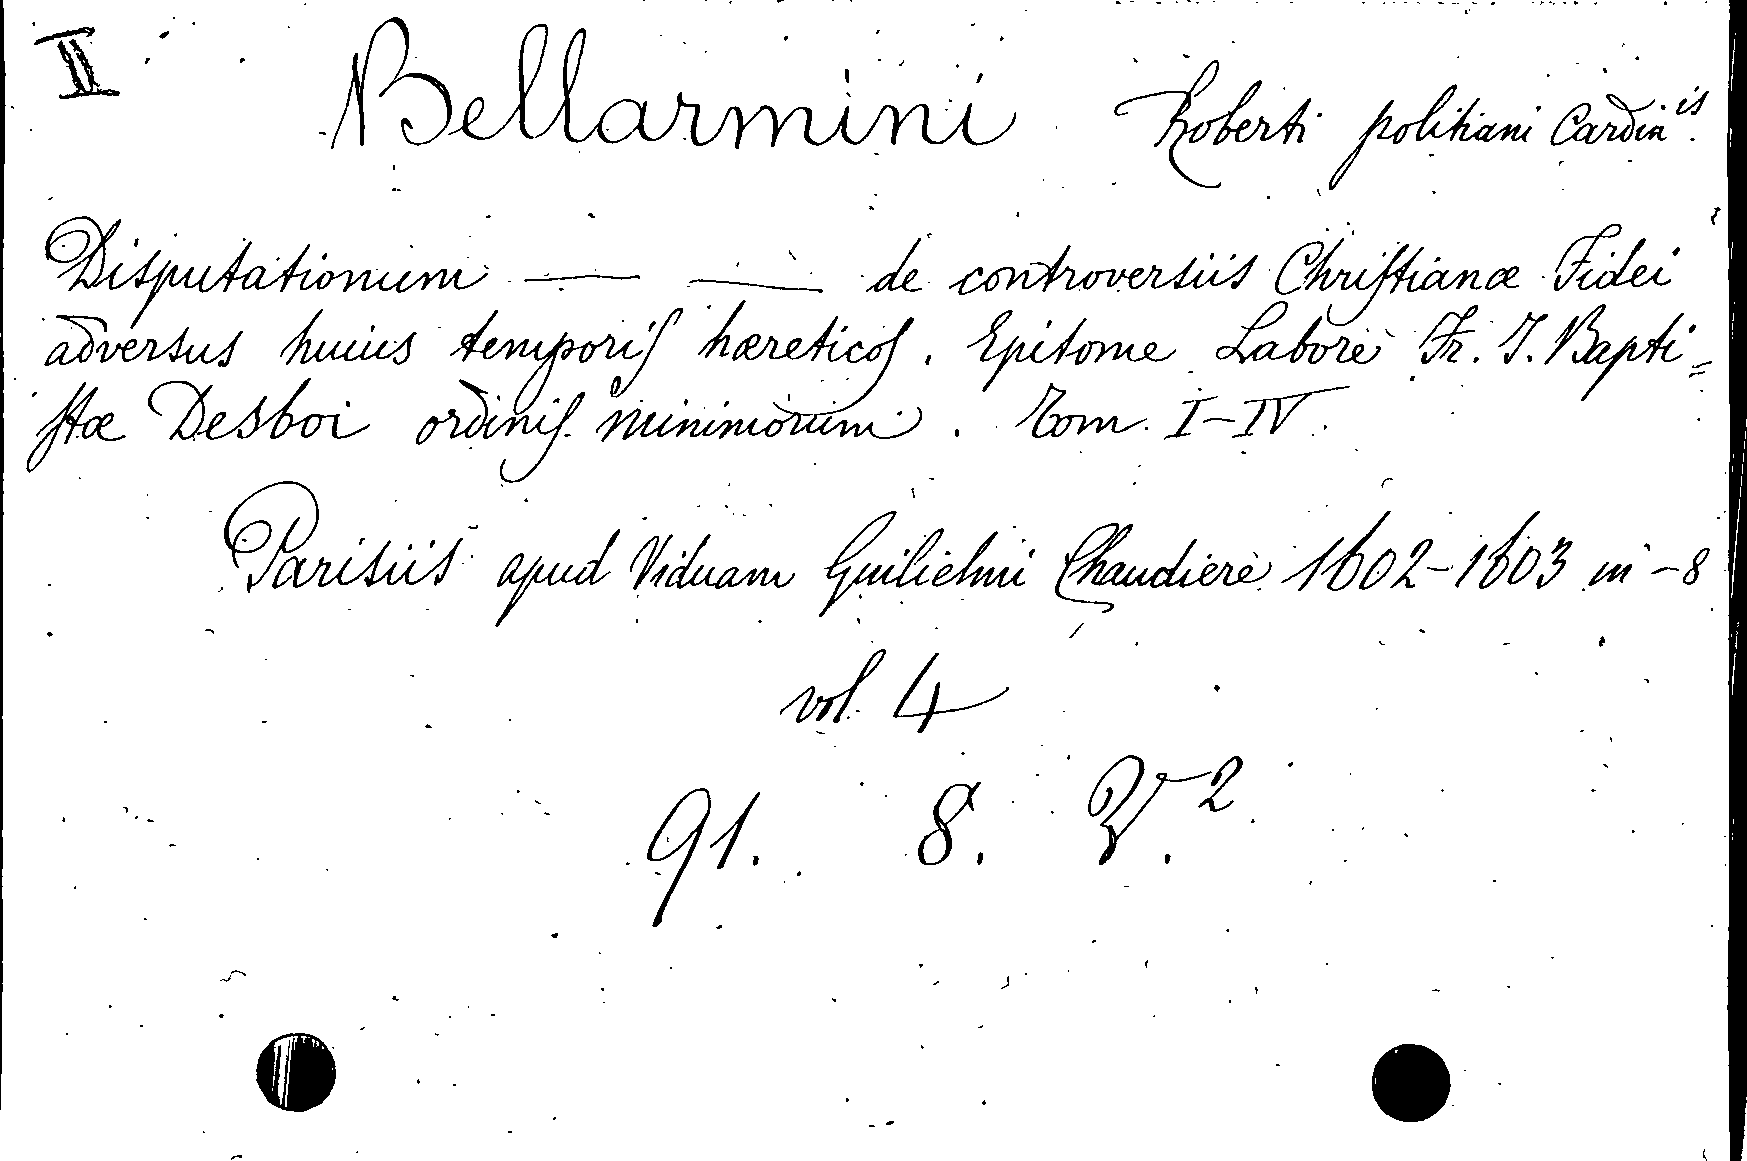 II
Bellarmini Roberti politiani Cardin^is.
Disputationum — — de controversiis Chriſtianæ Fidei
adversus huius temporiſ hæreticoſ. Epitome Labore Fr. J. Bapti=
ſtæ Desboi ordiniſ minimorum. Tom. I-IV.
Parisiis apud Viduam Guilielmi Chaudiere 1602-1603 in-8
vol. 4
91. 8. 2.